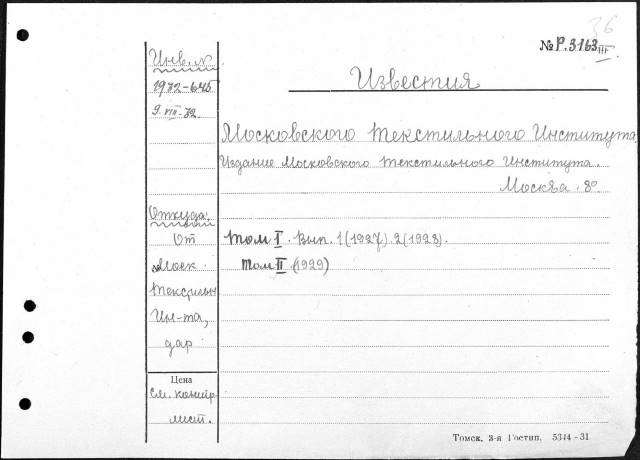 36
№ Р.3163 III
Инв. №
1932-645
9.VIII-32.
Известия
Московского Текстильного Института.
Издание Московского Текстильного Института.
Москва. 8°
Откуда:
От
Моск.
Текстильн
Ин-та,
дар
том I. Вып. 1(1927). 2(1928).
Том II (1929)
Цена
См. контр.
лист.
Томск. 3-я Гостип. 5344-31